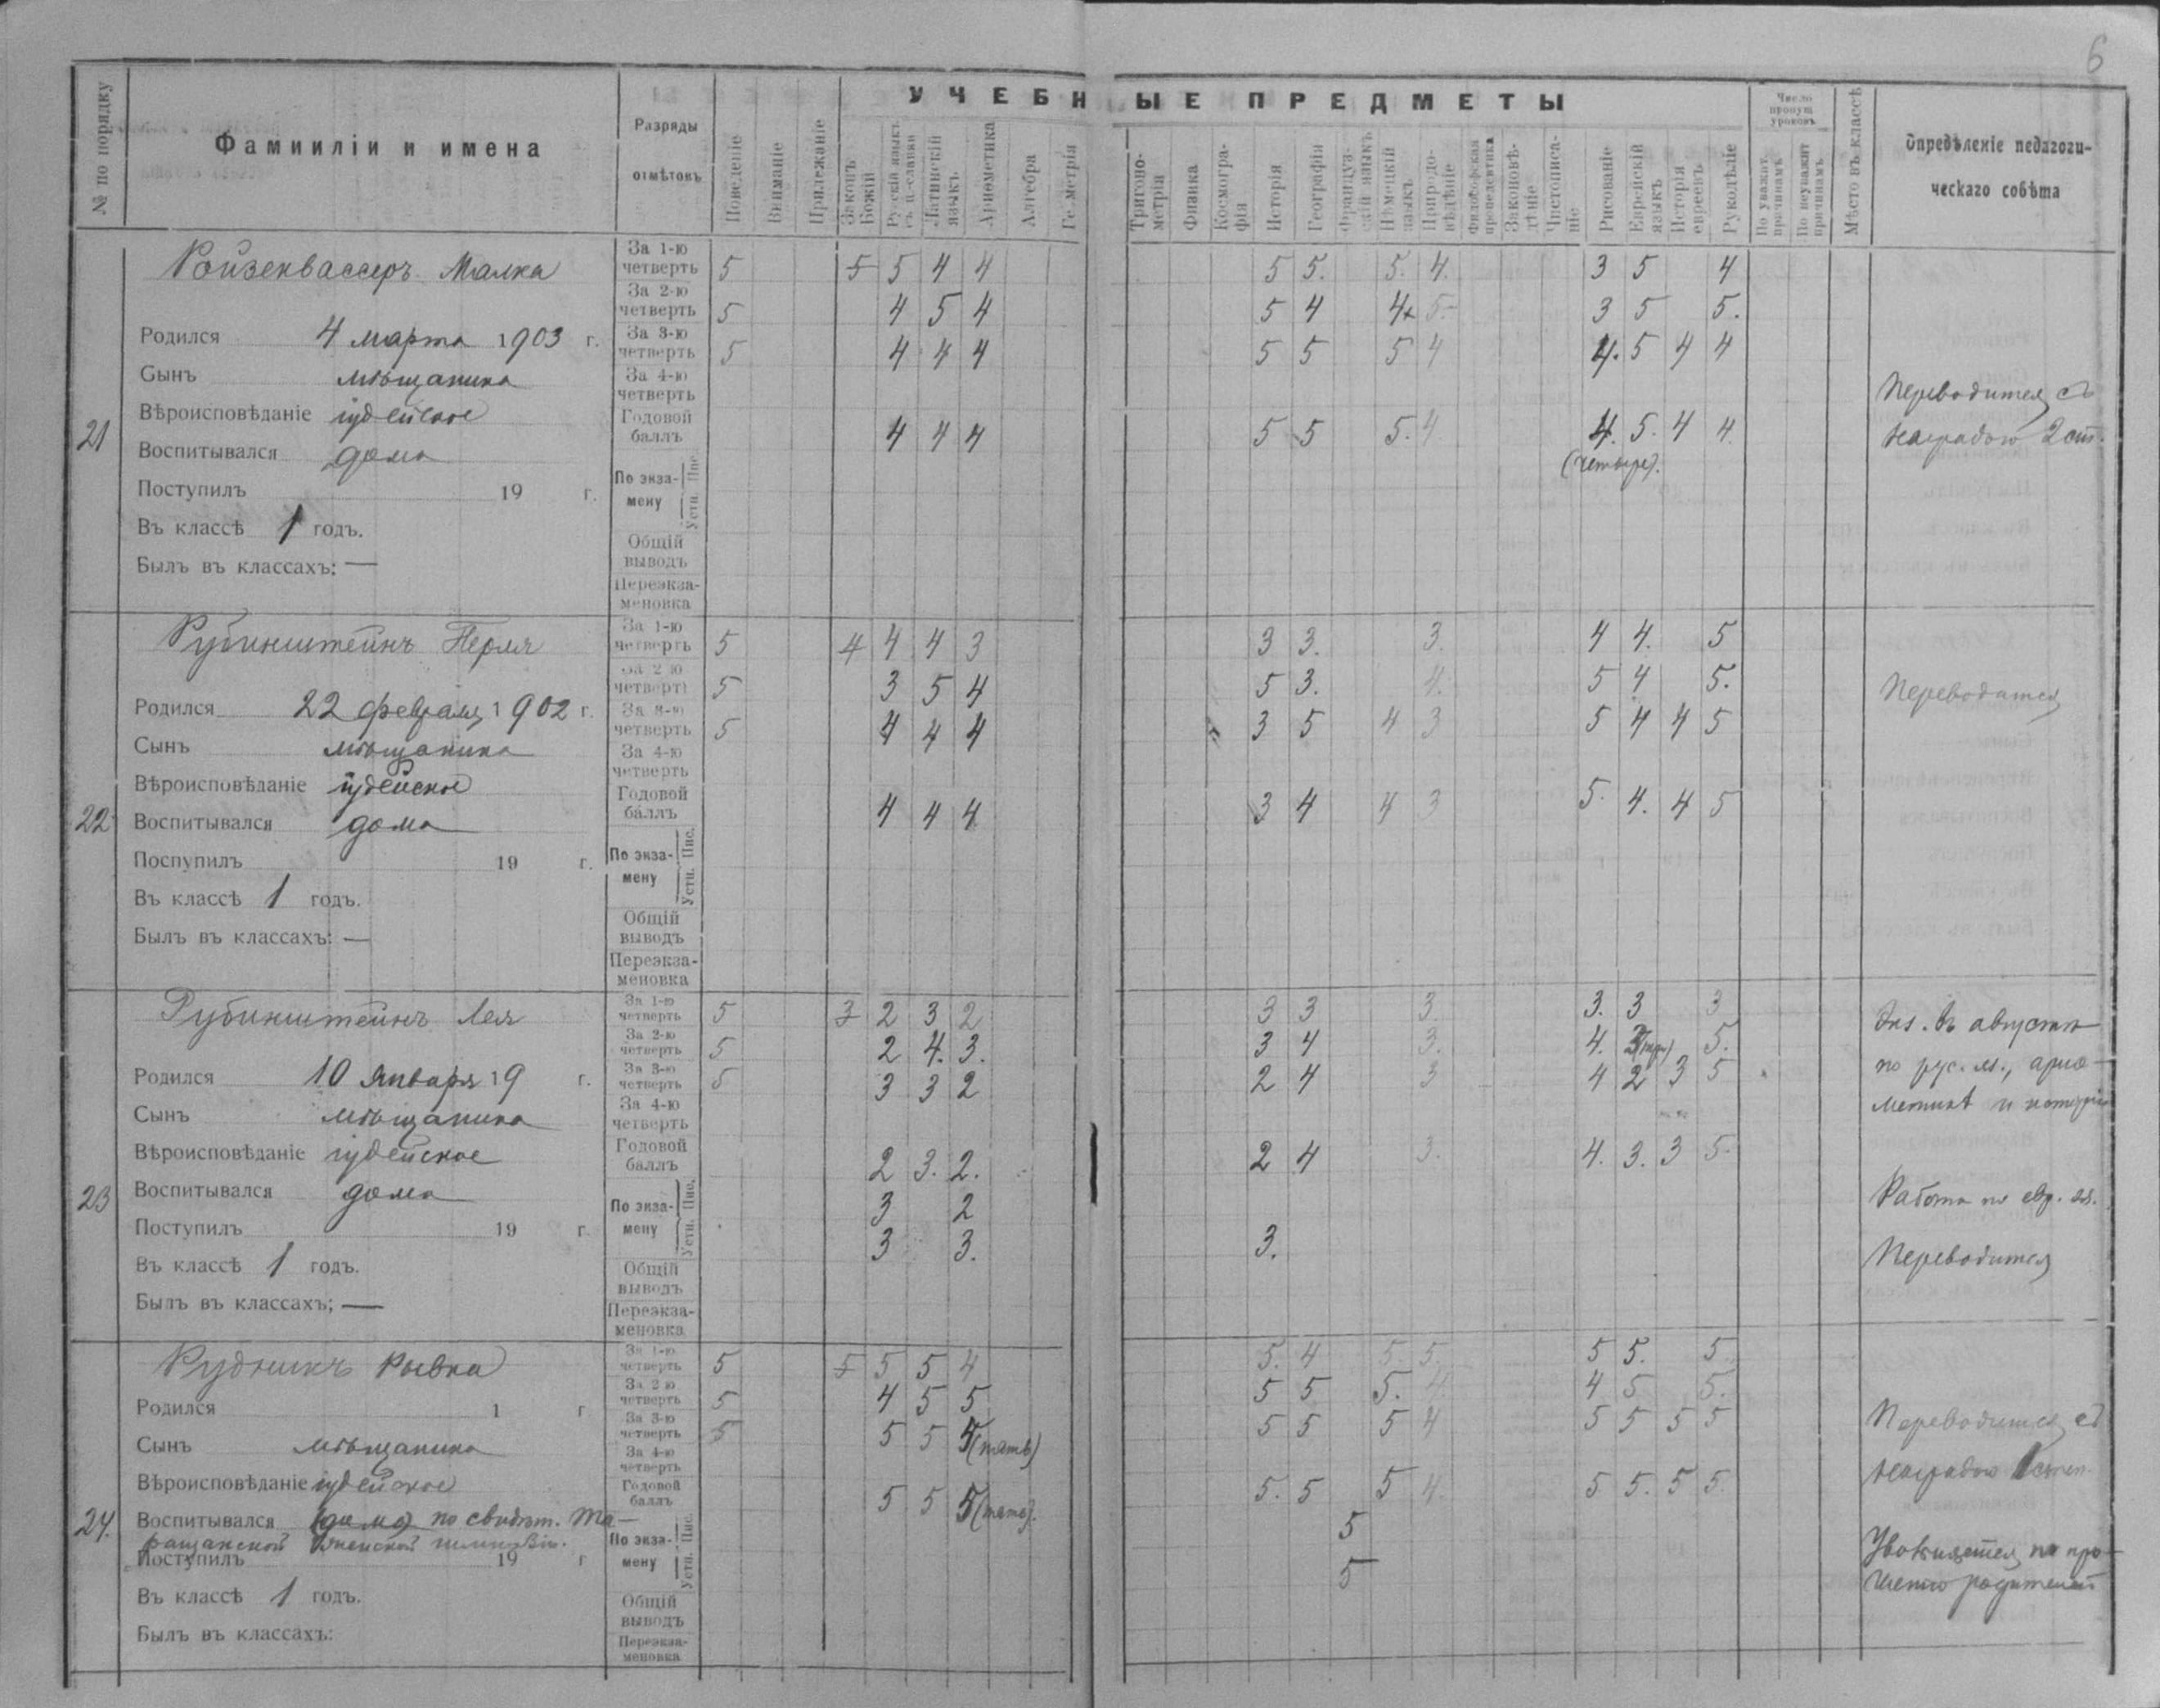 6
УЧЕБНЫЕ ПРЕДМЕТЫ
№ по порядку
Фамииліи и имена
Разряды отмѣтокъ
Поведеніе
Вниманіе
Прилежаніе
Законъ Божій
Русскій языкъ съ ц-славян
Латинскій языкъ
Ариѳметика
Алгебра
Геометрія
Тригонометрія
Физика
Космографія
Исторія
Географія
Французскій языкъ
Нѣмецкій языкъ
Природовѣдѣніе
Философская пропедевтика
Законовѣдѣніе
Чистописаніе
Рисованіе
Еврейскій языкъ
Исторія евреевъ
Рукодѣліе
Число пропущ уроковъ
По уважит. причинамъ
По неуважит причинамъ
Мѣсто въ классѣ
Опредѣленіе педагогическаго совѣта
21
Ройзенвассеръ Малка
Родился 4 марта 1903 г.
Сынъ мѣщанина
Вѣроисповѣданіе іудейское
Воспитывался дома
Поступилъ 19 г.
Въ классѣ 1 годъ.
Былъ въ классахъ: —
За 1-ю четверть 5 5 5 4 4 5 5. 5. 4. 3 5 4
За 2-ю четверть 5 4 5 4 5 4 4 5 3 5 5.
За 3-ю четверть 5 4 4 4 5 5 5 4 4. 5 4 4
За 4-ю четверть
Годовой баллъ 4 4 4 5 5 5. 4 4. 5. 4 4.
(четыре).
По экзамену Пис. Устн.
Общій выводъ
Переэкзаменовка
Переводится съ
наградою 2 ст.
22
Рубинштейнъ Перля
Родился 22 февраля 1902 г.
Сынъ мѣщанина
Вѣроисповѣданіе іудейское
Воспитывался дома
Поспупилъ 19 г.
Въ классѣ 1 годъ.
Былъ въ классахъ: —
За 1-ю четверть 5 4 4 4 3 3 3. 3. 4 4. 5
За 2-ю четверть 5 3 5 4 5 3. 4. 5 4 5.
За 3-ю четверть 5 4 4 4 3 5 4 3 5 4 4 5
За 4-ю четверть
Годовой баллъ 4 4 4 3 4 4 3 5. 4. 4 5
По экзамену Пис. Устн.
Общій выводъ
Переэкзаменовка
Переводится
23
Рубинштейнъ Лея
Родился 10 января 19 г.
Сынъ мѣщанина
Вѣроисповѣданіе іудейское
Воспитывался дома
Поступилъ 19 г.
Въ классѣ 1 годъ.
Былъ въ классахъ; —
За 1-ю четверть 5 3 2 3 2 3 3 3. 3. 3 3
За 2-ю четверть 5 2 4. 3. 3 4 3. 4. 3 (три) 5.
За 3-ю четверть 5 3 3 2 2 4 3 4 2 3 5
За 4-ю четверть
Годовой баллъ 2 3. 2. 2 4 3. 4. 3. 3 5.
По экзамену Пис. 3 2
Устн. 3 3. 3.
Общій выводъ
Переэкзаменовка
Экз. въ августѣ
по рус. яз., ариѳ-
метикѣ и исторіи
Работа по евр. яз.
Переводится
24.
Рудникъ Рывка
Родился 1 г
Сынъ мѣщанина
Вѣроисповѣданіе іудейское
Воспитывался (дома) по свидѣт. Та-
ращанской женской гимназіи.
Поступилъ 19 г
Въ классѣ 1 годъ.
Былъ въ классахъ:
За 1-ю четверть 5 5 5 5 4 5. 4 5 5. 5 5. 5
За 2-ю четверть 5 4 5 5 5 5 5. 4. 4 5 5.
За 3-ю четверть 5 5 5 5 (пять) 5 5 5 4 5 5 5 5
За 4-ю четверть
Годовой баллъ 5 5 5 (пять). 5. 5 5 4. 5 5. 5 5.
По экзамену Пис. 5
Устн. 5
Общій выводъ
Переэкзаменовка
Переводится съ
наградою 1 степ.
Увольняется по про-
шенію родителей